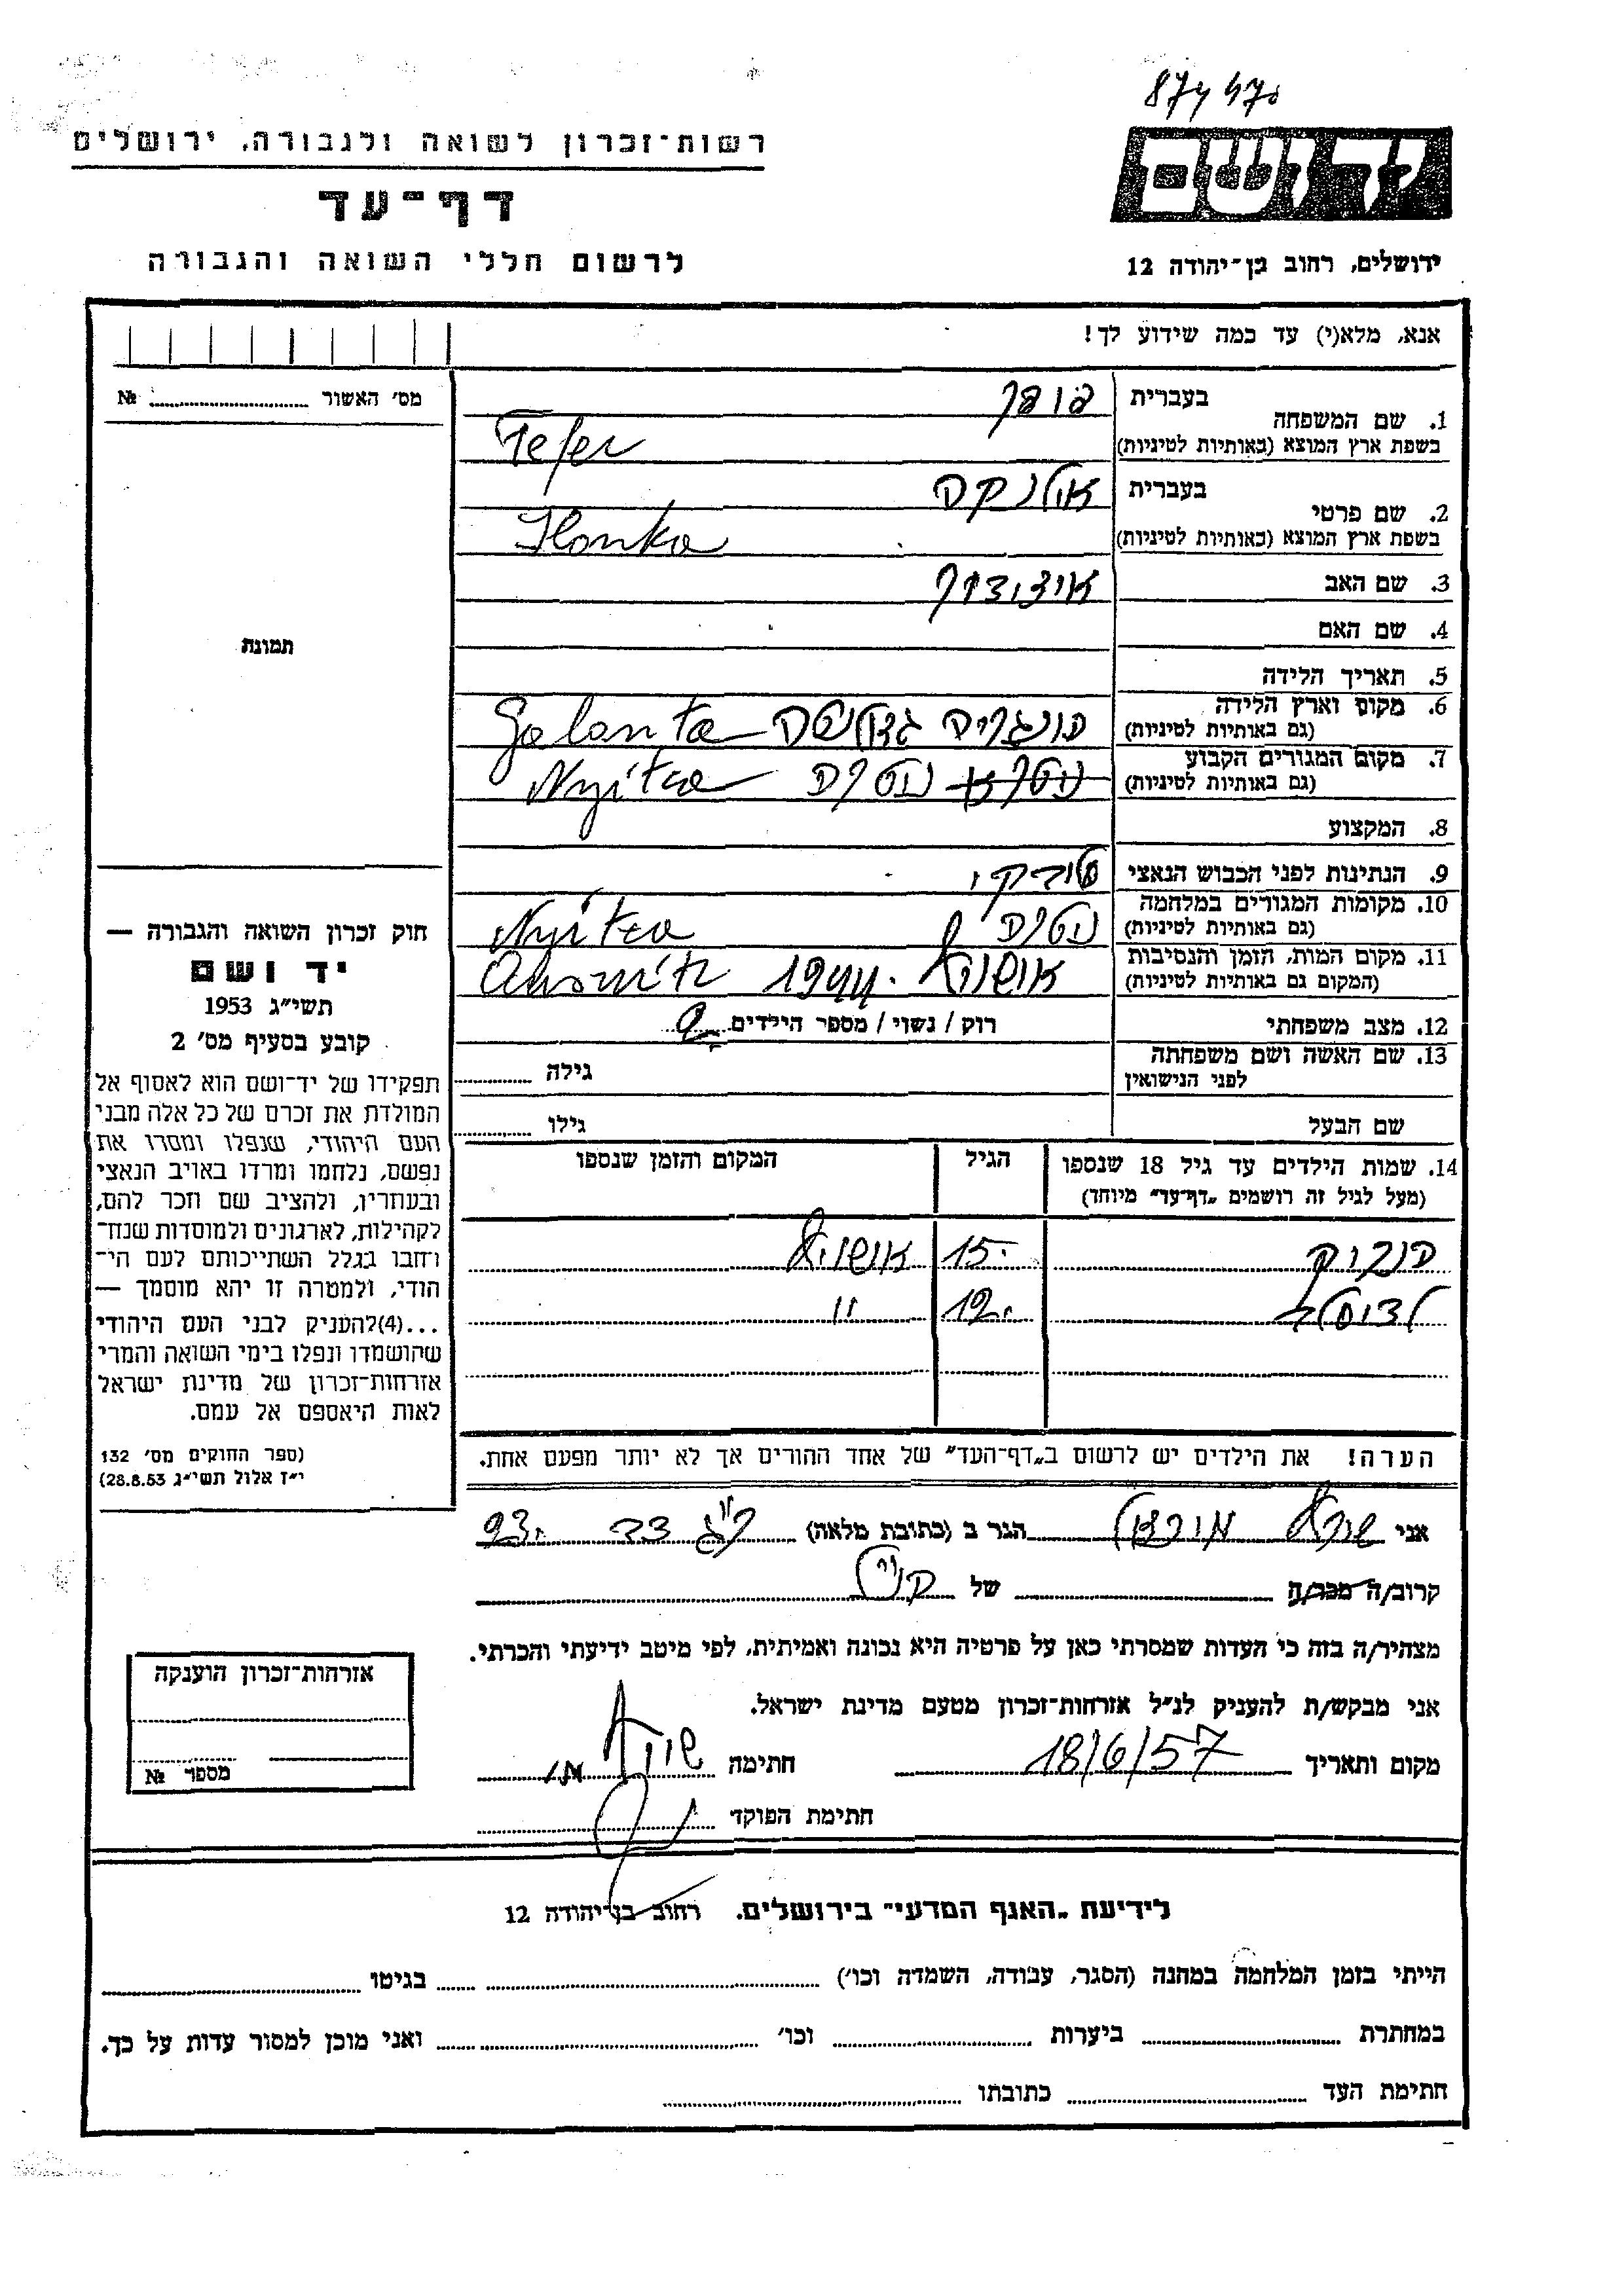 רשות־זכרון לשואה ולגבורה, ירושלים
דף־עד
לרשום חללי השואה והגבורה
ידושם
ירושלים, רחוב בן־יהודה 12
אנא, מלא(י) עד כמה שידוע לך!
מס' האשור № 
1. שם המשפחה
בעברית
בשפת ארץ המוצא (באותיות לטיניות)
2. שם פרטי
בעברית אילנקה
בשפת ארץ המוצא (באותיות לטיניות) Ilonka
3. שם האב
4. שם האם
5. תאריך הלידה
6. מקום וארץ הלידה
(גם באותיות לטיניות) הונגריה גלנטה Galanta
7. מקום המגורים הקבוע
(גם באותיות לטיניות) ניטרא ניטרה Nyitra
8. המקצוע
9. הנתינות לפני הכבוש הנאצי
10. מקומות המגורים במלחמה
(גם באותיות לטיניות) ניטרה Nyitra
11. מקום המות, הזמן והנסיבות
(המקום גם באותיות לטיניות) אושויץ 1944.
12. מצב משפחתי רוק / נשוי / מספר הילדים 2
13. שם האשה ושם משפחתה
לפני הנישואין גילה
שם הבעל גילו
14. שמות הילדים עד גיל 18 שנספו הגיל המקום והזמן שנספו
(מעל לגיל זה רושמים „דף־עד" מיוחד)
15 אושויץ
12 "
הערה! את הילדים יש לרשום ב„דף־העד" של אחד ההורים אך לא יותר מפעם אחת.
תמונת
חוק זכרון השואה והגבורה —
יד ושם
תשי״ג 1953
קובע בסעיף מס' 2
תפקידו של יד־ושם הוא לאסוף אל
המולדת את זכרם של כל אלה מבני
העם היהודי, שנפלו ומסרו את
נפשם, נלחמו ומרדו באויב הנאצי
ובעוזריו, ולהציב שם וזכר להם,
לקהילות, לארגונים ולמוסדות שנח־
רחבו בגלל השתייכותם לעם הי־
הודי, ולמטרה זו יהא מוסמך —
...(4)להעניק לבני העם היהודי
שהושמדו ונפלו בימי השואה והמרי
אזרחות־זכרון של מדינת ישראל
לאות היאספם אל עמם.
(ספר החוקים מס' 132
י״ז אלול תשי״ג 28.8.53)
אני הגר ב (כתובת מלאה)
קרוב/ה מכר/ה של
מצהיר/ה בזה כי העדות שמסרתי כאן על פרטיה היא נכונה ואמיתית, לפי מיטב ידיעתי והכרתי.
אני מבקש/ת להעניק לנ״ל אזרחות־זכרון מטעם מדינת ישראל.
מקום ותאריך 18/6/57 חתימה
חתימת הפוקד
אזרחות־זכרון הוענקה
מספר №
לידיעת „האגף המדעי" בירושלים. רחוב בן־יהודה 12
הייתי בזמן המלחמה במחנה (הסגר, עבודה, השמדה וכו') בגיטו
במחתרת ביערות וכו' ואני מוכן למסור עדות על כך.
חתימת העד כתובתו